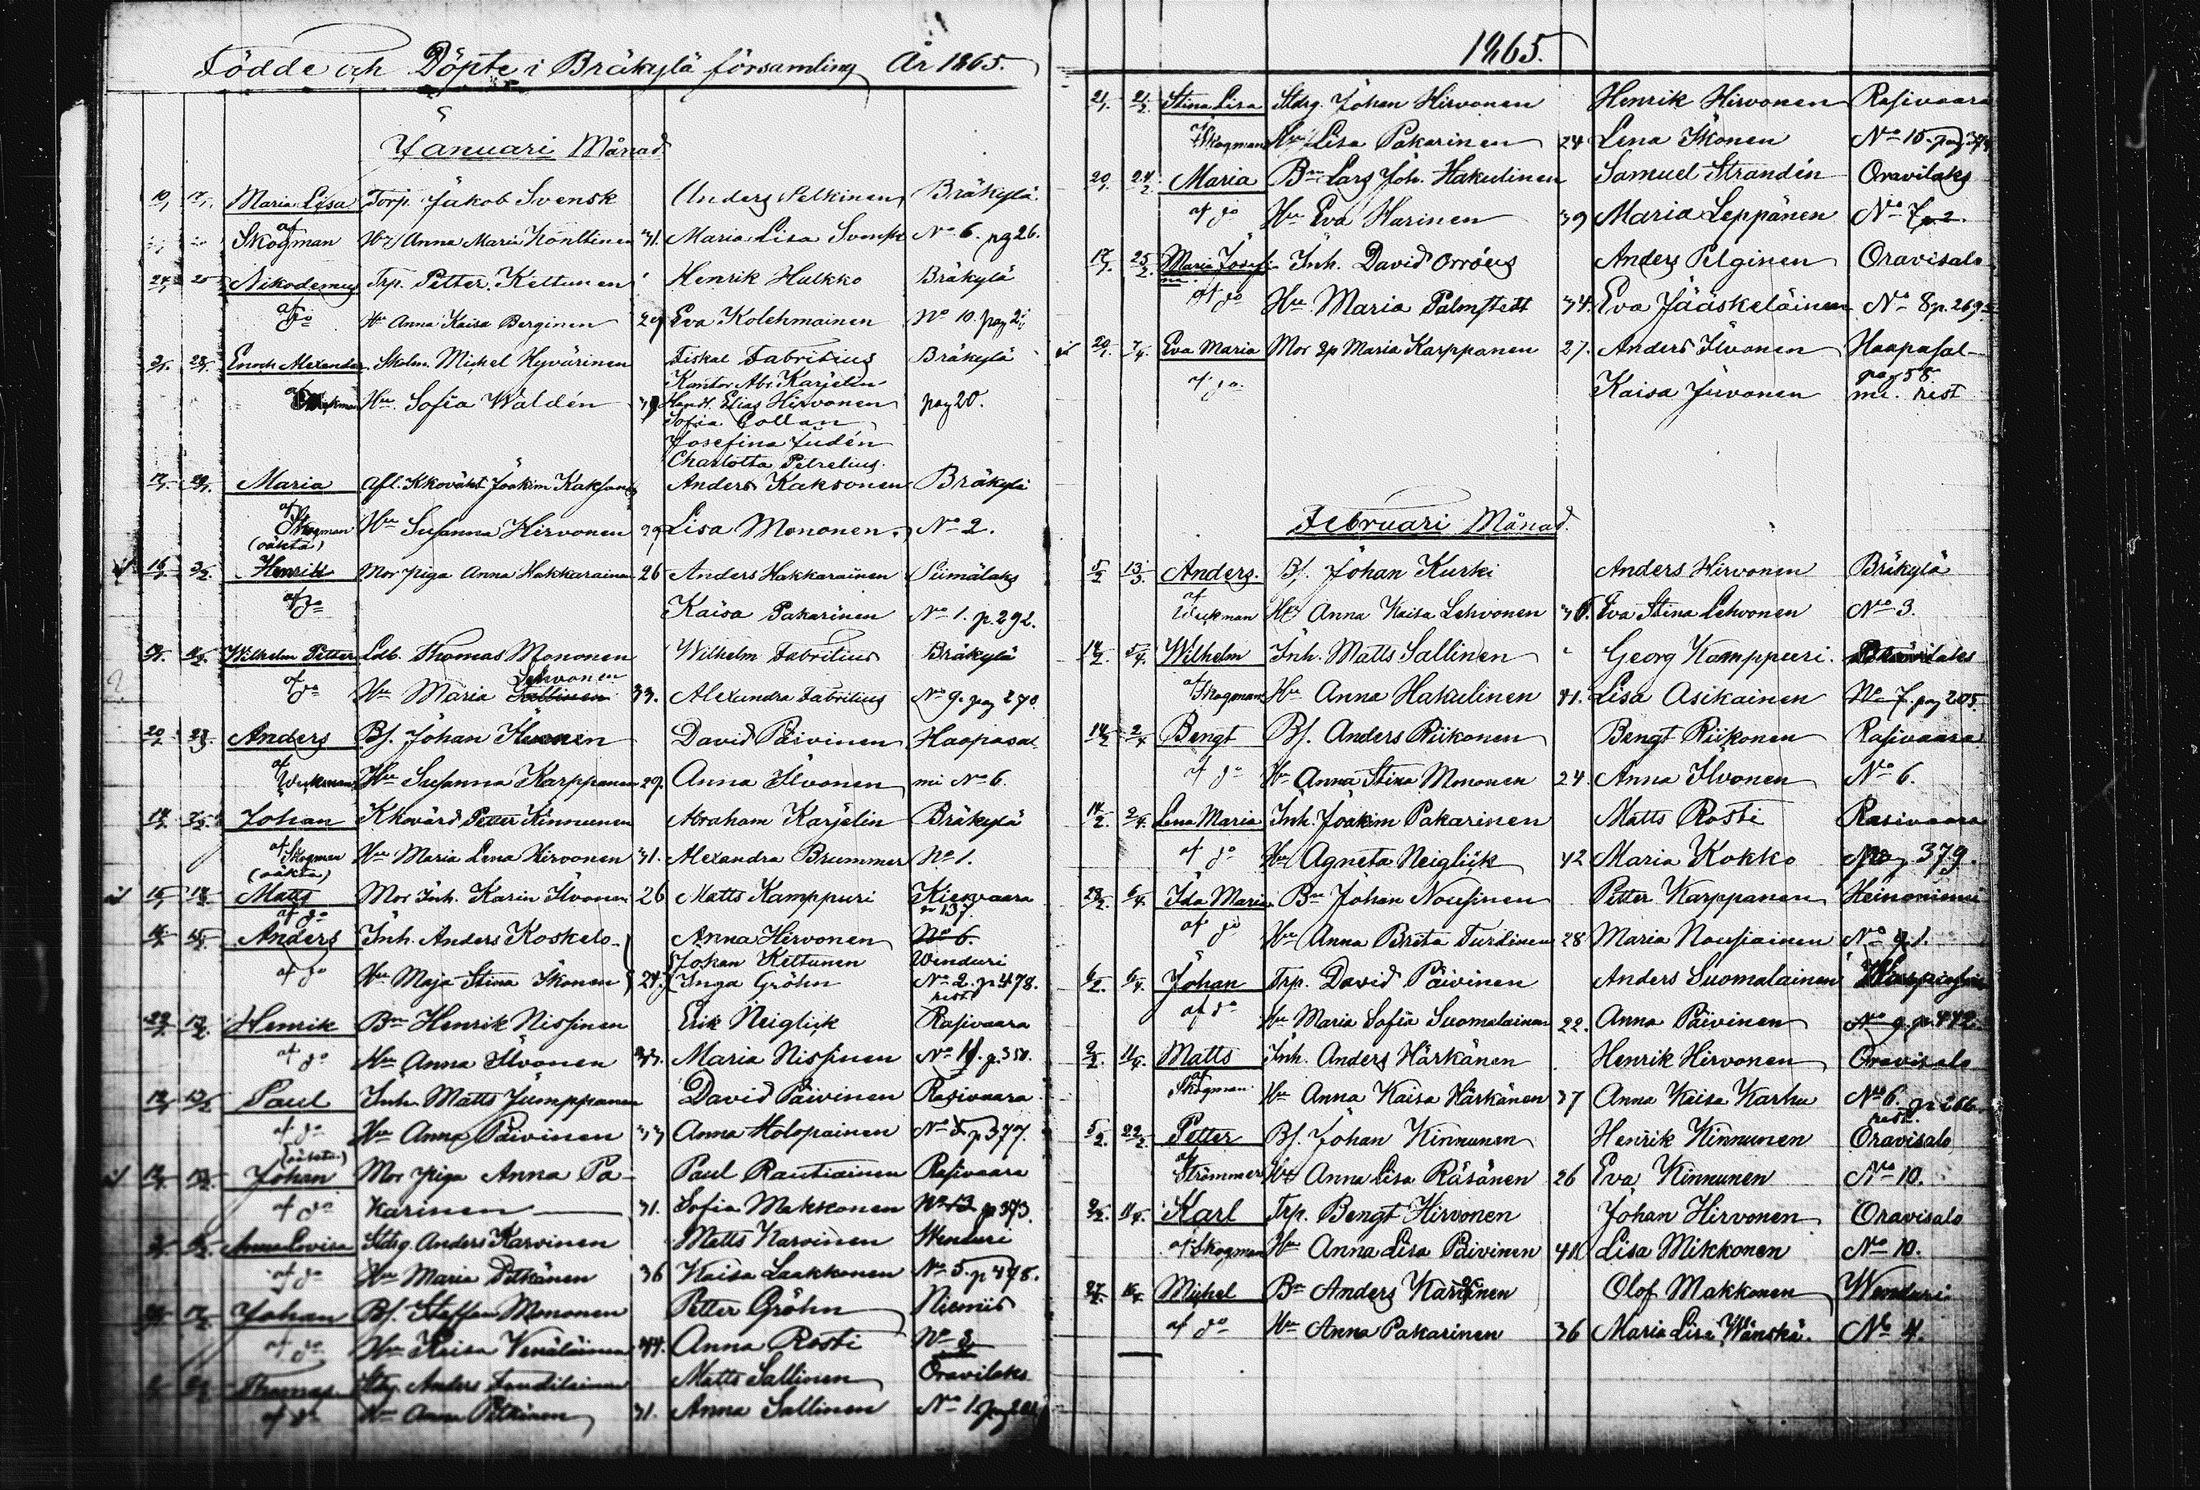 Födde och Döpte i Bräkylä församling År 1865.
Januari Månad
10/1 17/1 Maria Lisa Torp. Jakob Svensk Anders Pelkinen Bräkylä
af Skogman Hu Anna Maria Konttinen 31. Maria Lisa Svensk No 6. pg 26.
24/1 25 Nikodemus Trp. Petter Kettunen Henrik Hulkko Bräkylä
af do Hu Anna Kaisa Berginen 29 Eva Kolehmainen No 10. pag 2
28/1 Enoch Alexander Skolm. Michel Hyvärinen Fiskal Fabritius Bräkylä
Kantor Abr. Karjelin
af Hu Sofia Waldén 39 Handl. Elias Hirvonen pag 20.
Sofia Collan
Josefina Judén
Charlotta Petrelius.
Maria Afl. Kkovakt Joakim Kaksonen Anders Kaksonen Bräkylä
af Skogman Hu Susanna Hirvonen 39 Lisa Mononen No 2.
(oäkta)
16/1 3/2 Henrik Mor Piga Anna Hakkarainen 26 Anders Hakkarainen Siimälaks
af do Kaisa Pakarinen No 1. p. 292.
Wilhelm Petter Ldb. Thomas Mononen Wilhelm Fabritius Bräkylä
Lehvonen
af do Hu Maria Sallinen 33. Alexandra Fabritius No 9. pag 270
Anders Bf. Johan Ihvonen David Päivinen Haapasal
af Weckman Hu Susanna Karppanen 29. Anna Ihvonen mi No 6.
Johan Kkovärd Petter Kinnunen Abraham Karjelin Bräkylä
af Skogman Hu Maria Lena Hirvonen 31. Alexandra Brummer No 1.
(oäkta)
Matts Mor Inh. Karin Ihvonen 26 Matts Kamppuri Kiesvaara
af do p 137
Anders Inh. Anders Koskelo Anna Hirvonen No 6.
Johan Kettunen Wenduri
af do Hu Maja Stina Ikonen 24 Inga Gröhn No 2. p 478.
rest
Henrik Bn Henrik Nissinen Erik Neiglick Rasivaara
af do Hu Anna Ihvonen Maria Nissinen No 11. p. 350.
Paul Inh. Matts Jumppanen David Päivinen Rasivaara
af do Hu Anna Päivinen 33 Anna Holopainen No 5. p 377.
(oäkta)
Johan Mor Piga Anna Pa- Paul Rautiainen Rasivaara
af do karinen 31. Sofia Makkonen No 13 p 373.
Anna Lovisa Stdrg. Anders Karvinen Matts Karvinen Wenduri
af do Hu Maria Pitkänen 36 Kaisa Laakkonen No 5. p 478.
Johan Bf. Staffan Mononen Petter Gröhn Niemis
af do Hu Kaisa Venäläinen 44. Anna Rosti No 2
Thomas Stdrg. Anders Matts Sallinen Oravilaks
af do Hu Anna Pitkänen 31. Anna Sallinen No 1.
1865.
21/1 21/2 Stina Lisa Stdrg. Johan Hirvonen Henrik Hirvonen Rasivaara
af Skogman Hu Lisa Pakarinen 24 Lena Ikonen No 10. pag 374
20/1 24/2 Maria Bn Lars Joh. Hakulinen Samuel Strandén Oravilaks
af do Hu Eva Harinen 39 Maria Leppänen No 7 p 2.
17/1 25/2 Maria Josefina Inh. David Orröus Anders Pelginen Oravisalo
af do Hu Maria Palmstedt 34. Eva Jääskeläinen No 8 p. 269
20/1 7/4 Eva Maria Mor Ip Maria Karppanen 27. Anders Ihvonen Haapasal-
pag 58
af do Kaisa Juvonen mi. rest
Februari Månad.
5/2 13/3 Anders. Bf. Johan Kurki Anders Hirvonen Bräkylä
af Weckman Hu Anna Kaisa Lehvonen 36. Eva Stina Lehvonen No 3.
14/2 5/4 Wilhelm Inh. Matts Sallinen Georg Kamppuri.
af Skogman Hu Anna Hakulinen 41. Lisa Asikainen No 7. pag 205
14/2 2/4 Bengt Bf. Anders Riikonen Bengt Riikonen Rasivaara
af do Hu Anna Stina Mononen 24. Anna Ihvonen No 6.
14/2 2/4 Lena Maria Inh. Joakim Pakarinen Matts Rosti Rasivaara
af do Hu Agneta Neiglick 42 Maria Kokko pag 379.
23/2 6/4 Ida Maria Bn Johan Nousinen Petter Karppanen Heinoniemi
af do Hu Anna Brita Turdinen 28 Maria Nousiainen No 9.1.
6/2 6/4 Johan Trp. David Päivinen Anders Suomalainen
af do Hu Maria Sofia Suomalainen 22. Anna Päivinen No 9. p. 442
9/2 11/4 Matts Inh. Anders Härkänen Henrik Hirvonen Oravisalo
af Skogman Hu Anna Kaisa Härkänen 37 Anna Kaisa Karhu No 6. p 266
rest.
5/2 22/2 Petter Bf. Johan Kinnunen Henrik Kinnunen Oravisalo
af Strömmer Hu Anna Lisa Räsänen 26 Eva Kinnunen No 10.
9/2 11/4 Karl Trp. Bengt Hirvonen Johan Hirvonen Oravisalo
af Skogman Hu Anna Lisa Päivinen 41 Lisa Mikkonen No 10.
27/2 16/4 Michel Bn Anders Karvinen Olof Makkonen Wenduri
af do Hu Anna Pakarinen 36 Maria Lisa Wänskä. No 4.